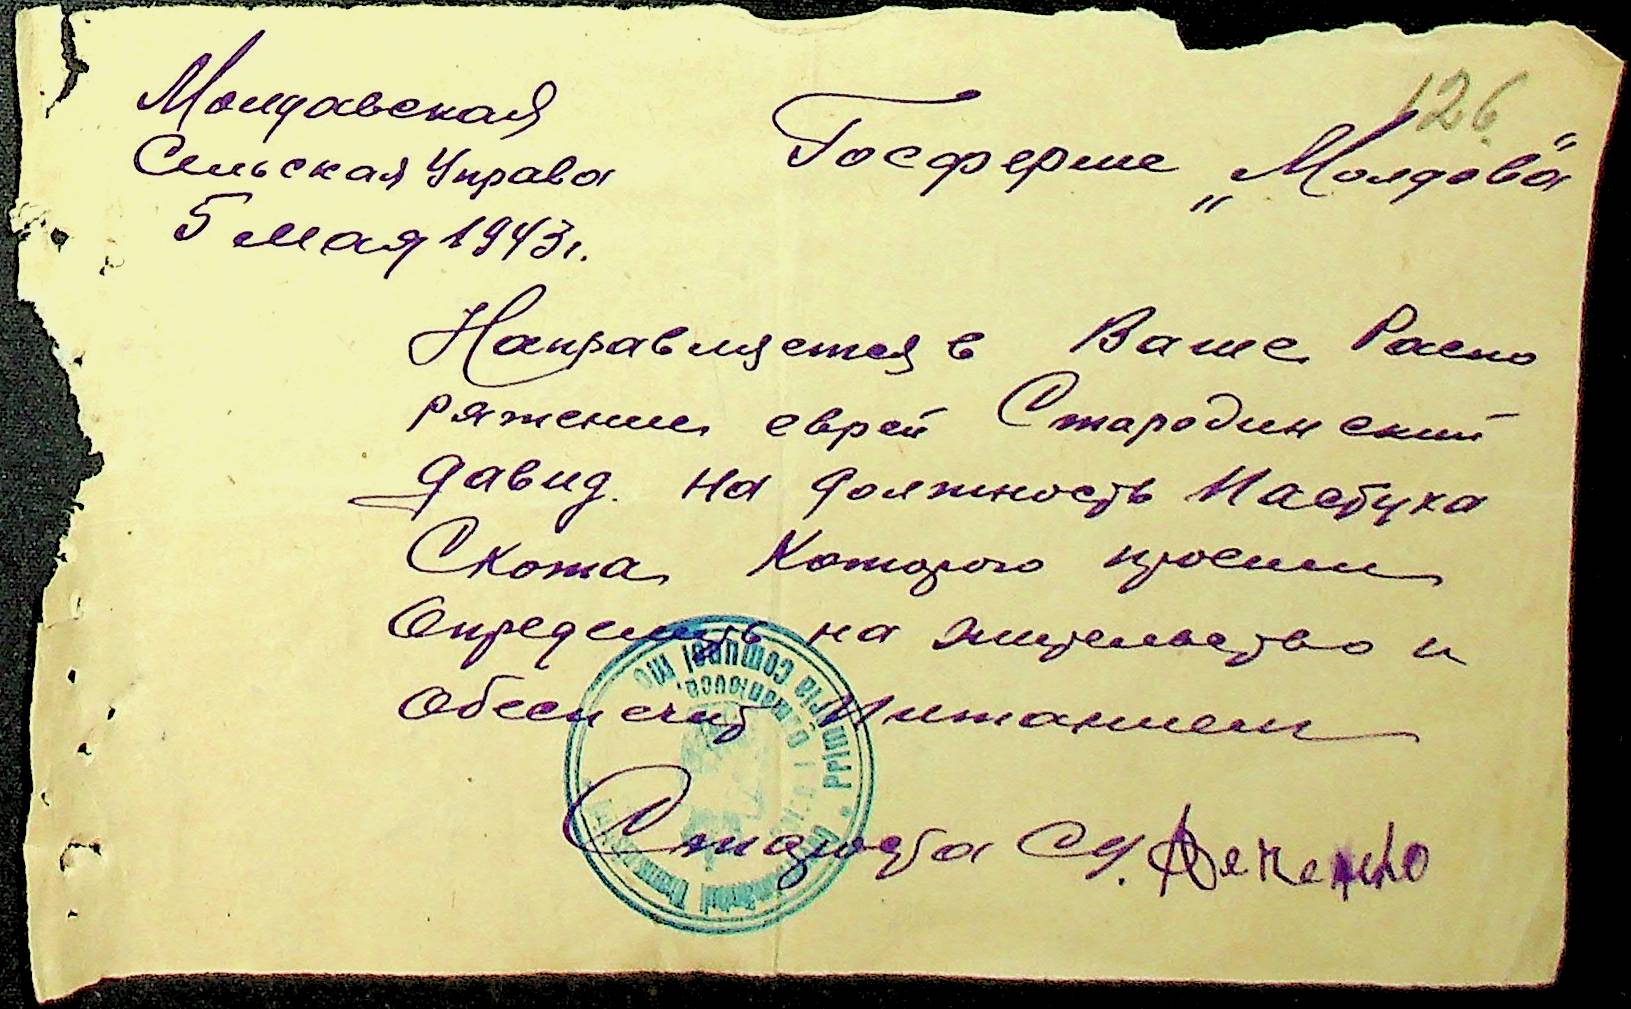 126
Молдавская
Сельская Управа
5 мая 1943 г.
Госферме „Молдова“
Направляется в Ваше Распо
ряжение еврей Стародинский
Давид. на должность Пастуха
Скота Которого просим
Определить на жительство и
Обеспечить Питанием
Primăria comunei
Староста СУ.